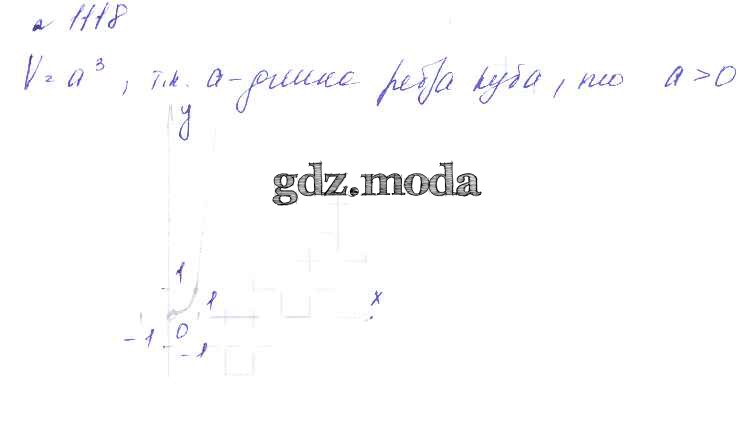 № 1118
V = a³, т.к. a - длина ребра куба, то a > 0
y
gdz.moda
1
1
x
-1 0
-1